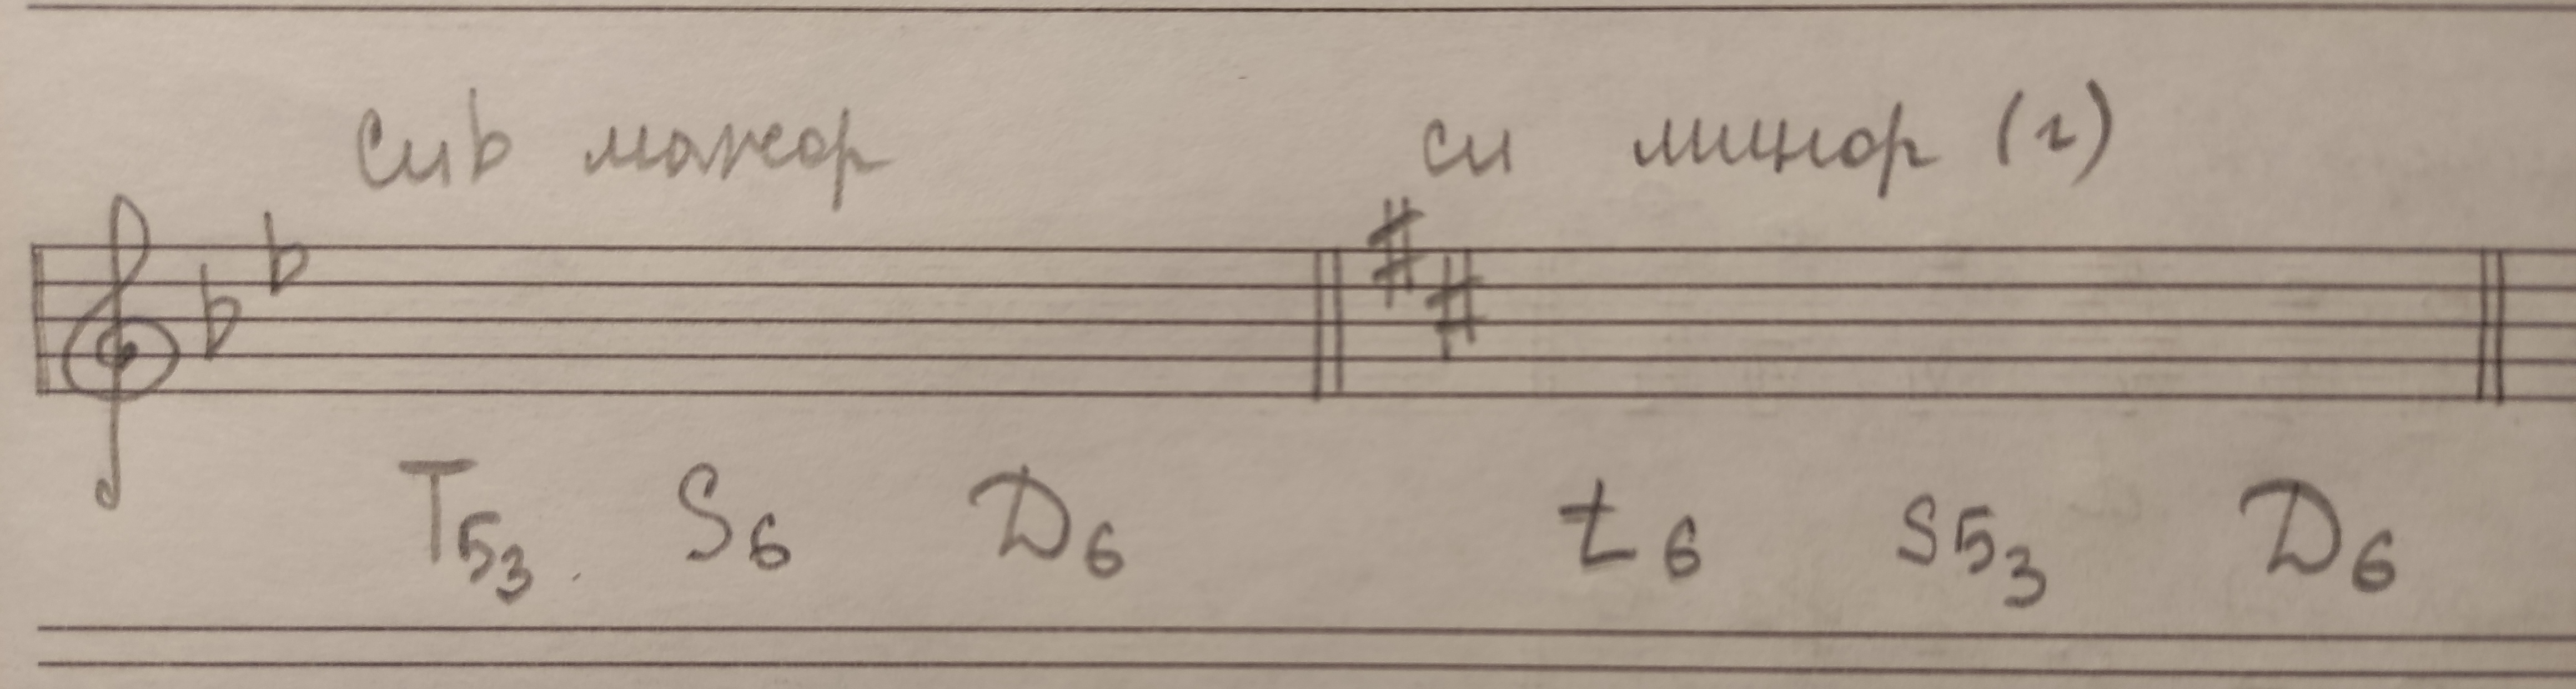 Сиb мажор си минор (г)
T53 S6 D6 t6 s53 D6